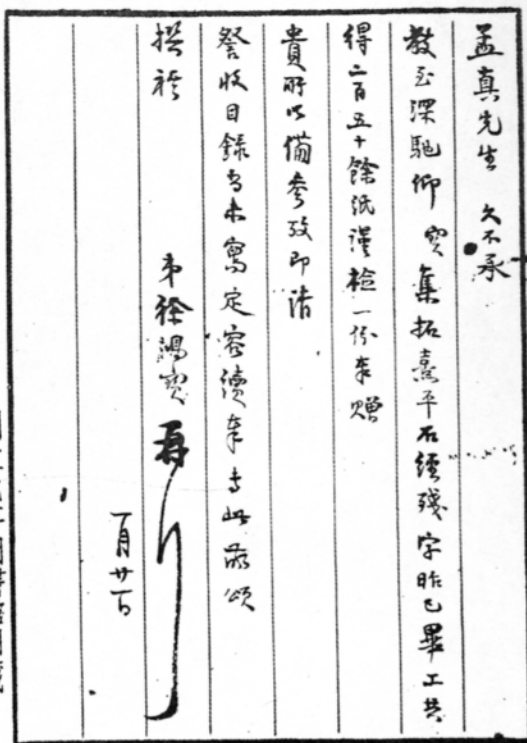 孟真先生 久不承
教至深馳仰 寶集拓熹平石經殘字昨已畢工共
得二百五十餘紙謹檢一份奉贈
貴所以備參攷即請
詧收目錄尚未寫定容續奉專此敬頌
撰祺
弟徐鴻寶再
一月廿一日